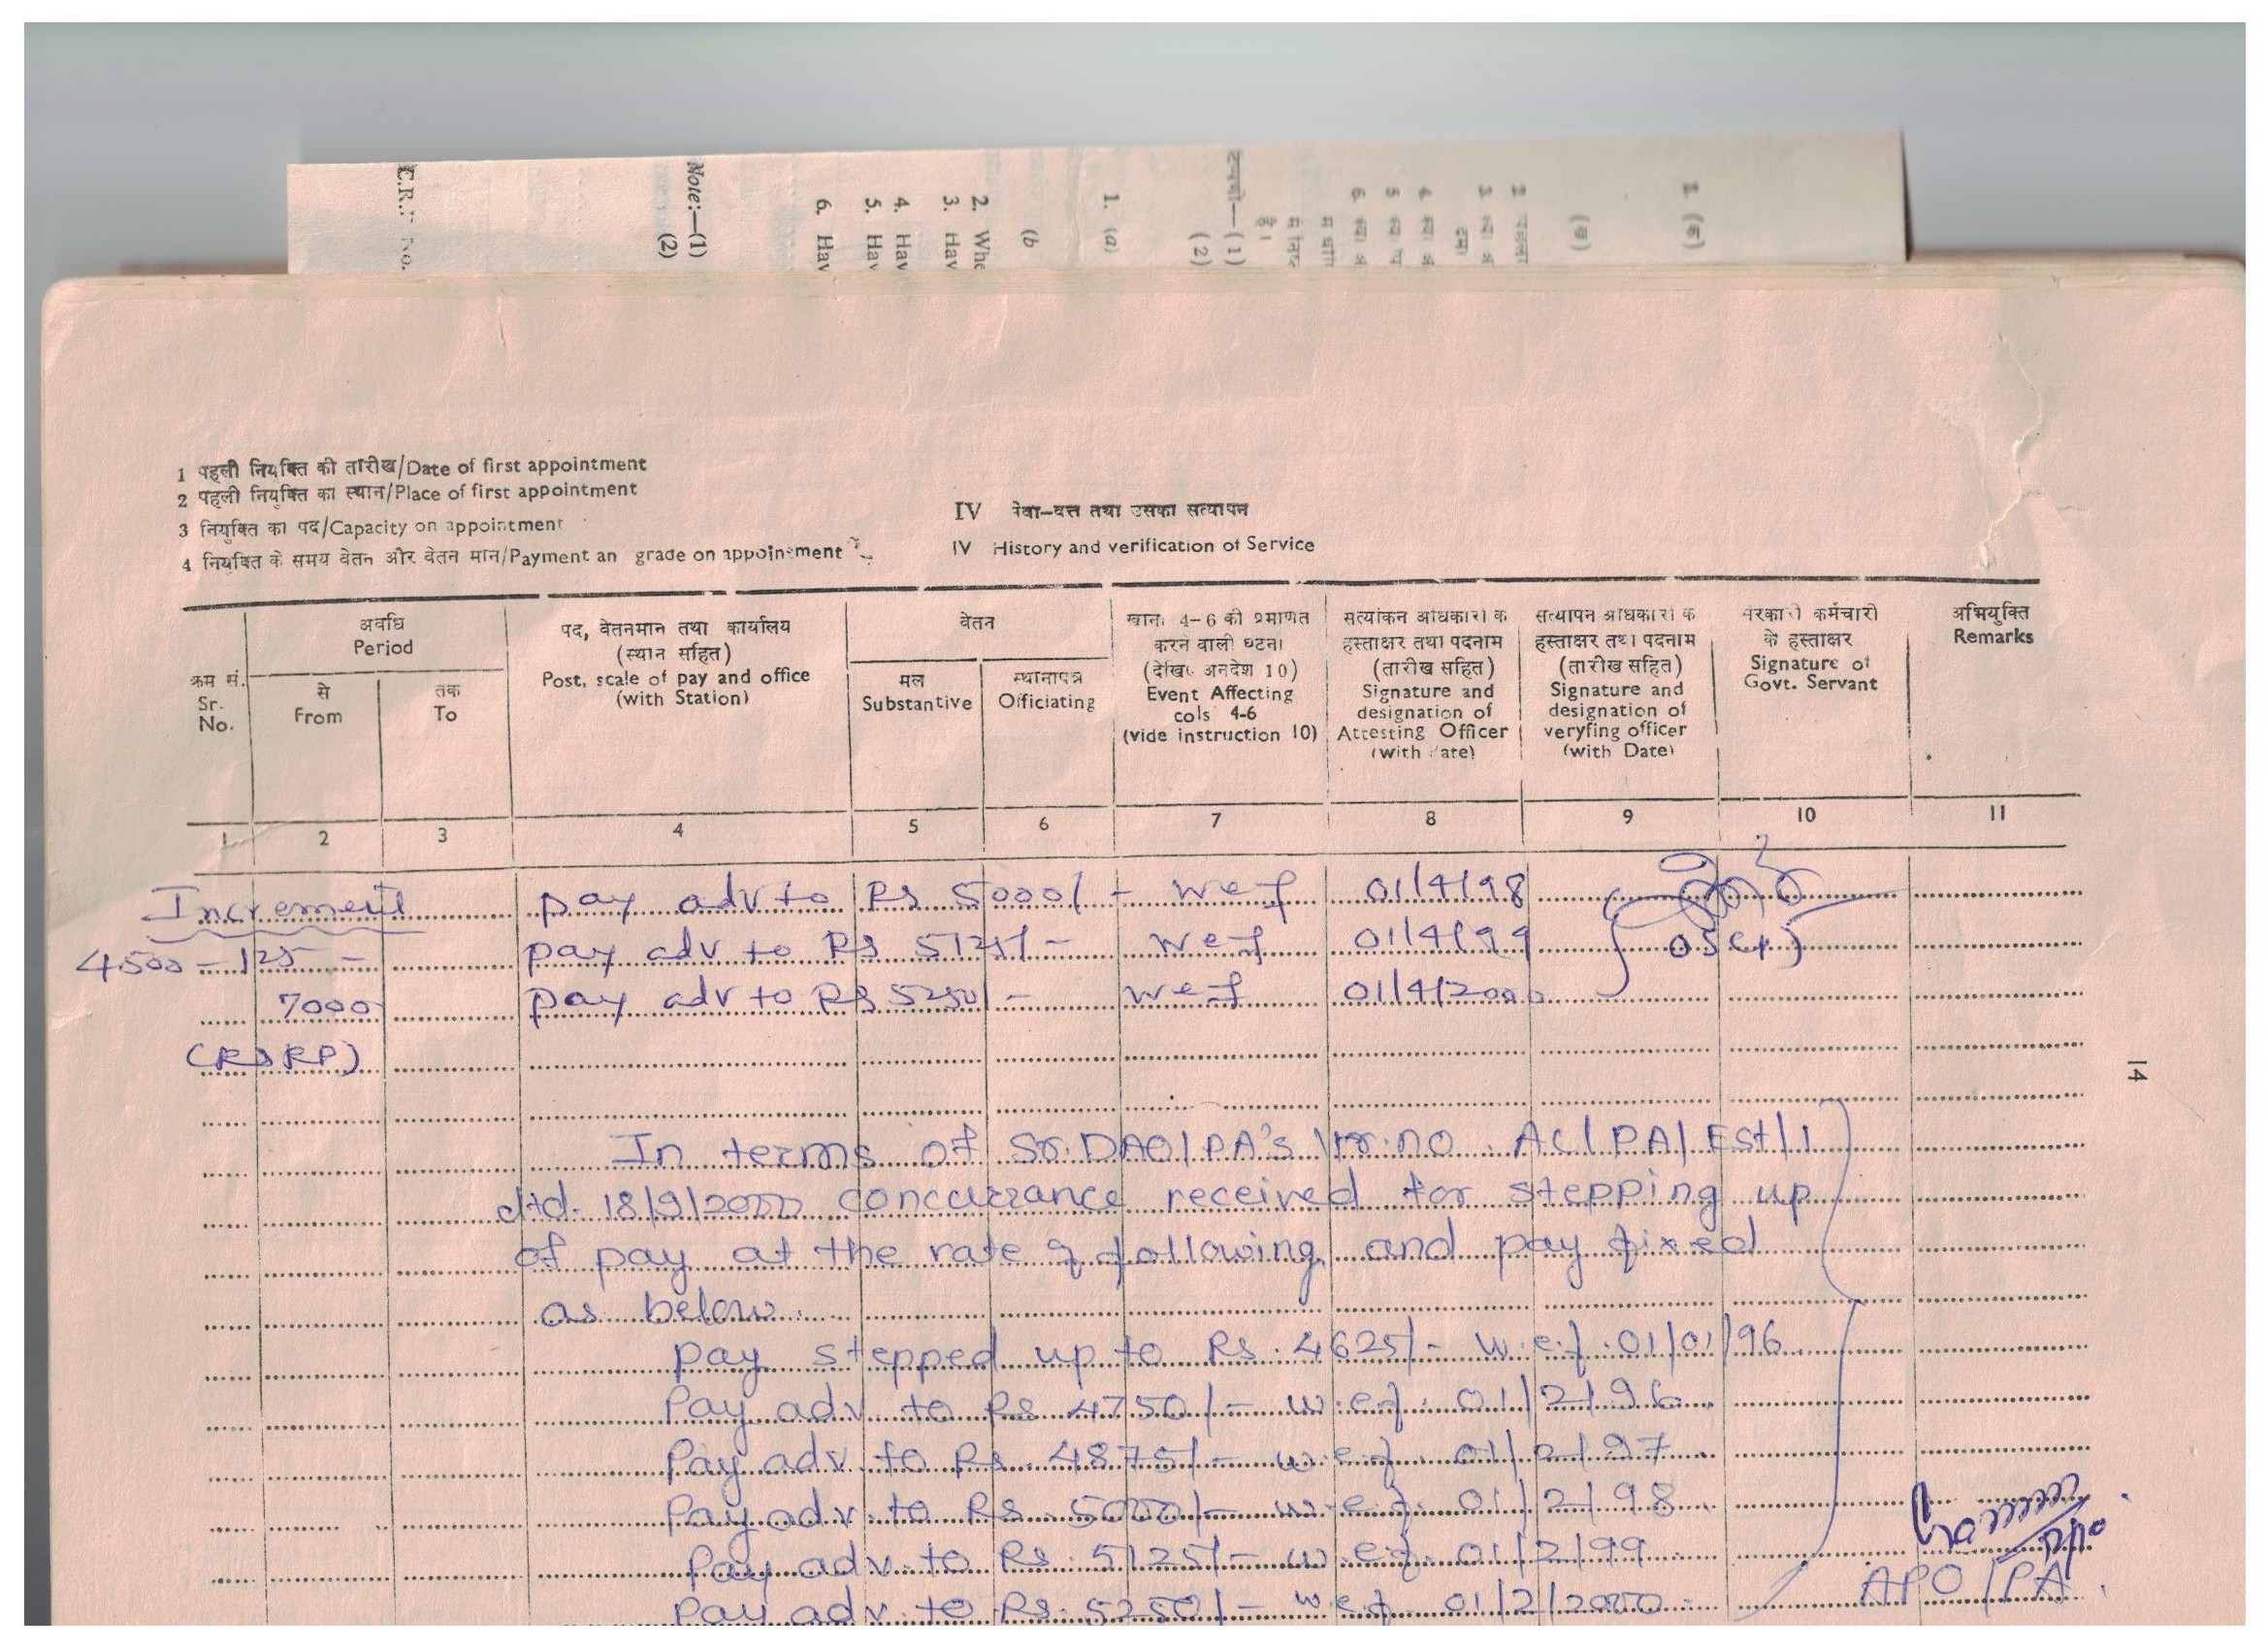 C.R.
Note:—(1)
(2)
6. Hav
5. Hav
4. Hav
3. Hav
2. Whe
(b
1. (a)
(2)
—(1)
1 पहली नियक्ति की तारीख/Date of first appointment
2 पहली नियक्ति का स्थान/Place of first appointment
3 नियुक्ति का पद/Capacity on appointment
4 नियक्ति के समय वेतन और वेतन मान/Payment an grade on appointment
IV तथा उसका सत्यापन
IV History and verification of Service
क्रम सं.
Sr.
No.
अवधि
Period
से
From
तक
To
पद, वेतनमान तथा कार्यालय
(स्थान सहित)
Post, scale of pay and office
(with Station)
वेतन
मल
Substantive
स्थानापन्न
Officiating
4-6 की
करने वाली
10)
Event Affecting
cols 4-6
(vide instruction 10)
सत्यांकन
हस्ताक्षर तथा पदनाम
(तारीख सहित)
Signature and
designation of
Attesting Officer
(with ate)
सत्यापन
हस्ताक्षर तथा पदनाम
(तारीख सहित)
Signature and
designation of
veryfing officer
(with Date)
कर्मचारी
के हस्ताक्षर
Signature of
Govt. Servant
अभियुक्ति
Remarks
1 2 3 4 5 6 7 8 9 10 11
Increment pay adv to Rs 5000/- wef 01/4/98
4500-125- pay adv to Rs 5125/- wef 01/4/99 OS(P)
7000 pay adv to Rs 5250/- wef 01/4/2000
(RSRP)
14
In terms of Sr.DAO/PA's no. AC/PA/Est/1
dtd. 18/9/2000 concurrance received for stepping up
of pay at the rate of following and pay fixed
as below.
pay stepped up to Rs. 4625/- w.e.f. 01/01/96
Pay adv. to Rs 4750/- w.e.f. 01/2/96
Pay adv. to Rs. 4875/- w.e.f. 01/2/97
Pay adv. to Rs. 5000/- w.e.f. 01/2/98
Pay adv. to Rs. 5125/- w.e.f. 01/2/99
Pay adv. to Rs. 5250/- w.e.f. 01/2/2000
APO/PA